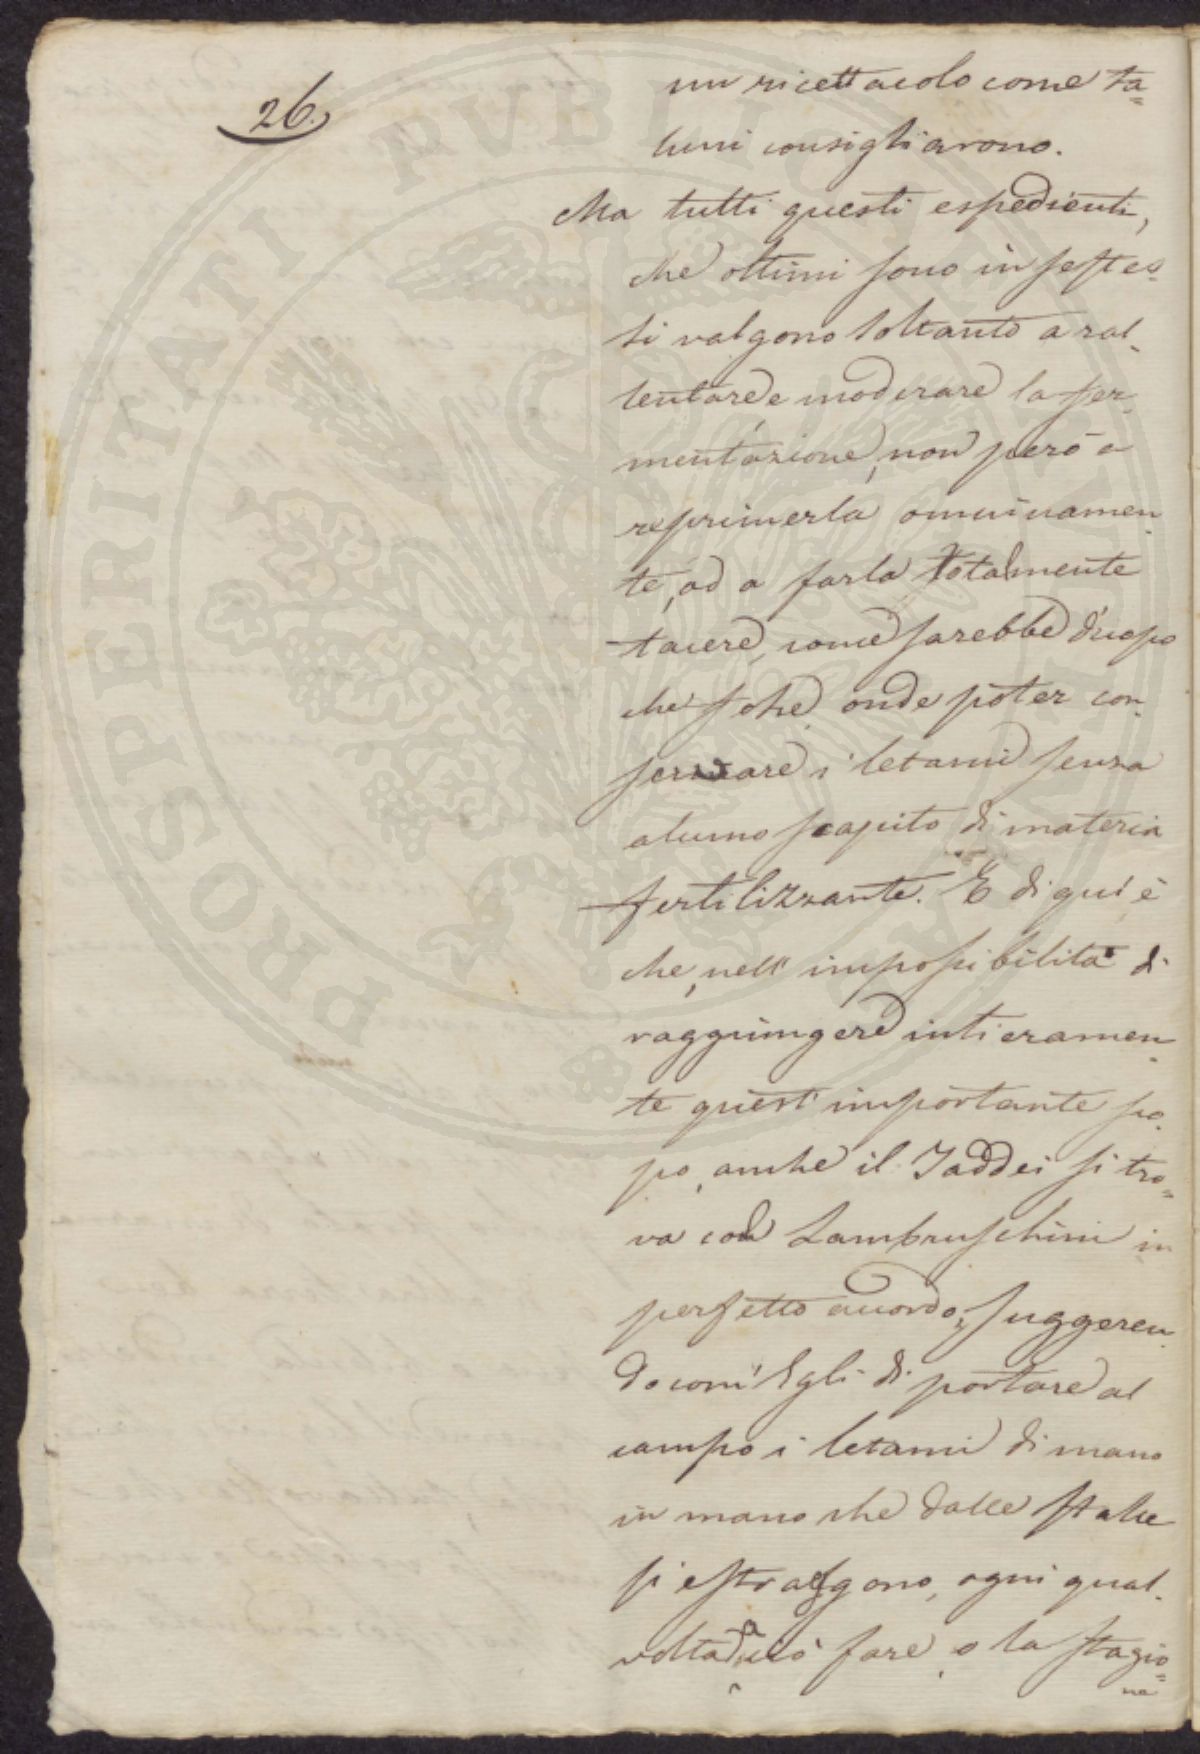 26.
un ricettacolo come ta=
luni consigliarono.
Ma tutti questi espedienti,
che ottimi sono in se stes-
si valgono soltanto a ral-
lentare e moderare la fer-
mentazione, non però a
reprimerla onninamen-
te, od a farla totalmente
tacere, come sarebbe d'uopo
che fosse onde poter con-
servare i letami senza
alcuno scapito di materia
fertilizzante. E di quì è
che, nell'impossibilità di
raggiungere intieramen-
te quest'importante sco-
po, anche il Taddei si tro=
va col Lambruschini in
perfetto accordo, suggeren-
do com'Egli di portare al
campo i letami di mano
in mano che dalle stalle
si estraggono, ogni qual-
volta a ciò fare o la stagio=
ne
PROSPERITATI PUBLICAE